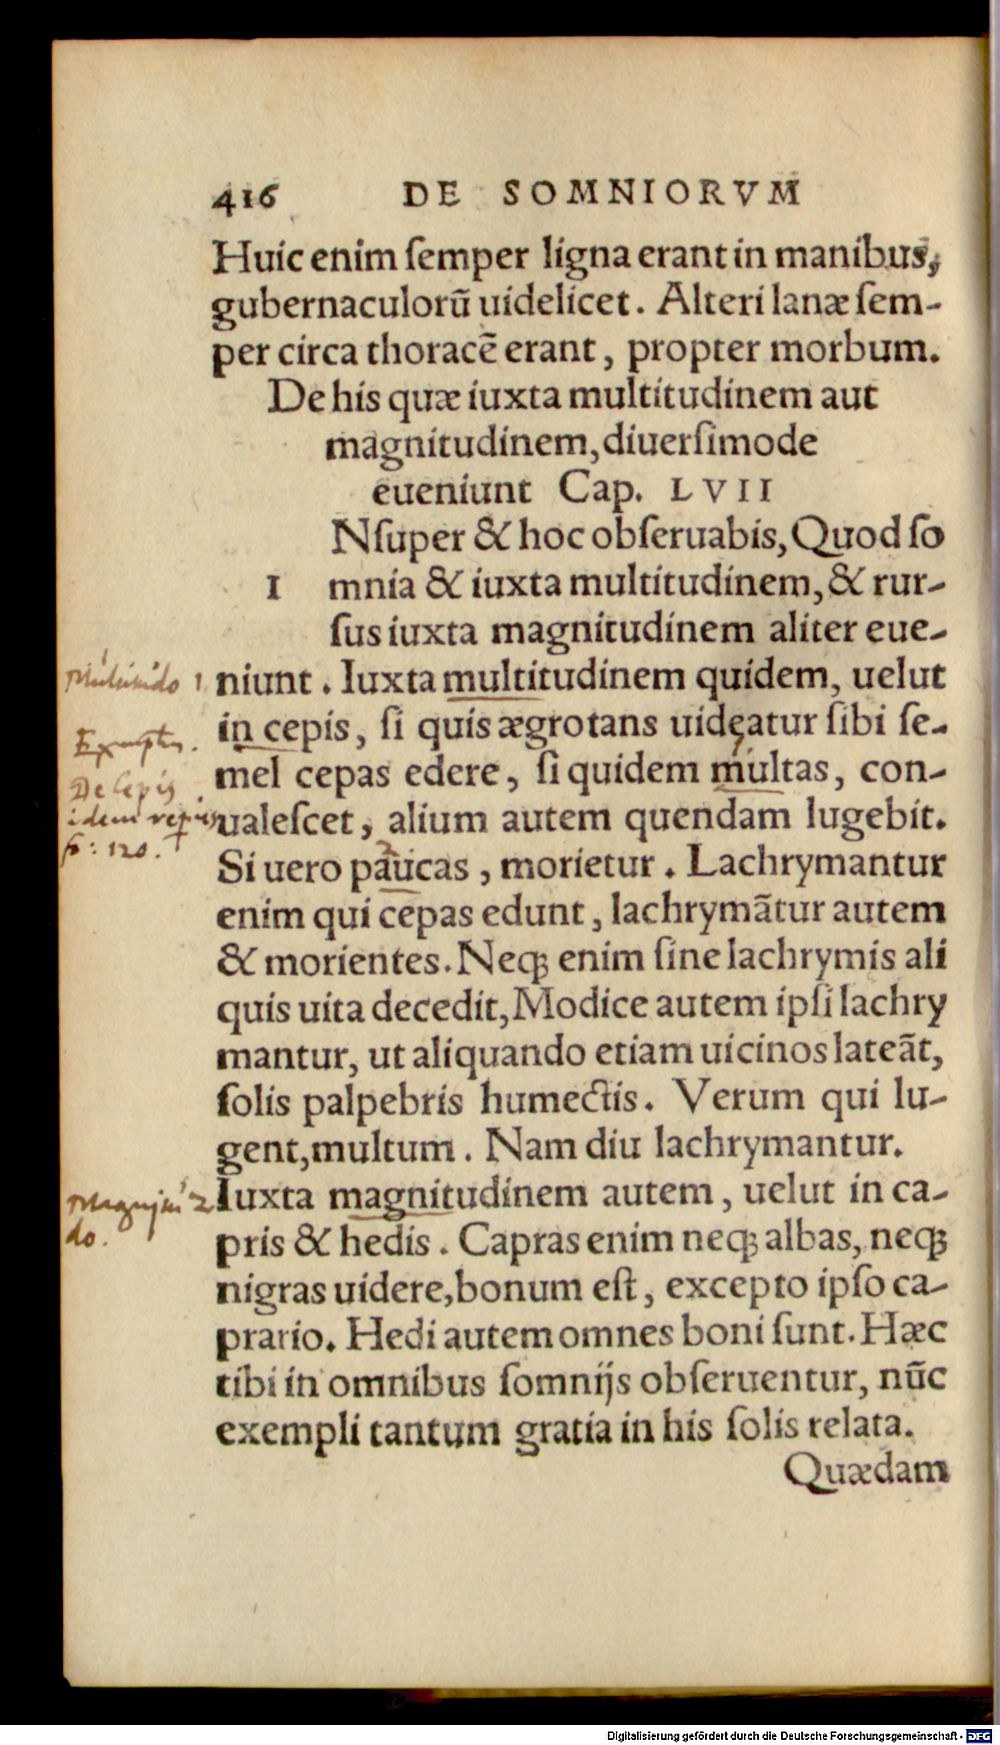 416 DE SOMNIORVM
Huic enim ſemper ligna erant in manibus,
gubernaculorũ uidelicet. Alteri lanæ ſem-
per circa thoracẽ erant, propter morbum.
De his quæ iuxta multitudinem aut
magnitudinem, diuerſimode
eueniunt Cap. LVII
Nſuper & hoc obſeruabis, Quod ſo
I mnia & iuxta multitudinem, & rur-
ſus iuxta magnitudinem aliter eue-
niunt. Iuxta multitudinem quidem, uelut
in cepis, ſi quis ægrotans uideatur ſibi ſe-
mel cepas edere, ſi quidem multas, con-
ualeſcet, alium autem quendam lugebit.
Si uero paucas, morietur. Lachrymantur
enim qui cepas edunt, lachrymãtur autem
& morientes. Neq; enim ſine lachrymis ali
quis uita decedit, Modice autem ipſi lachry
mantur, ut aliquando etiam uicinos lateãt,
ſolis palpebris humectis. Verum qui lu-
gent, multum. Nam diu lachrymantur.
Iuxta magnitudinem autem, uelut in ca-
pris & hedis. Capras enim neq; albas, neq;
nigras uidere, bonum eſt, excepto ipſo ca-
prario. Hedi autem omnes boni ſunt. Hæc
tibi in omnibus ſomnijs obſeruentur, nũc
exempli tantum gratia in his ſolis relata.
Quædam
1
De Cepis
idem
fo: 120.
2
do.
Digitalisierung gefördert durch die Deutsche Forschungsgemeinschaft - DFG